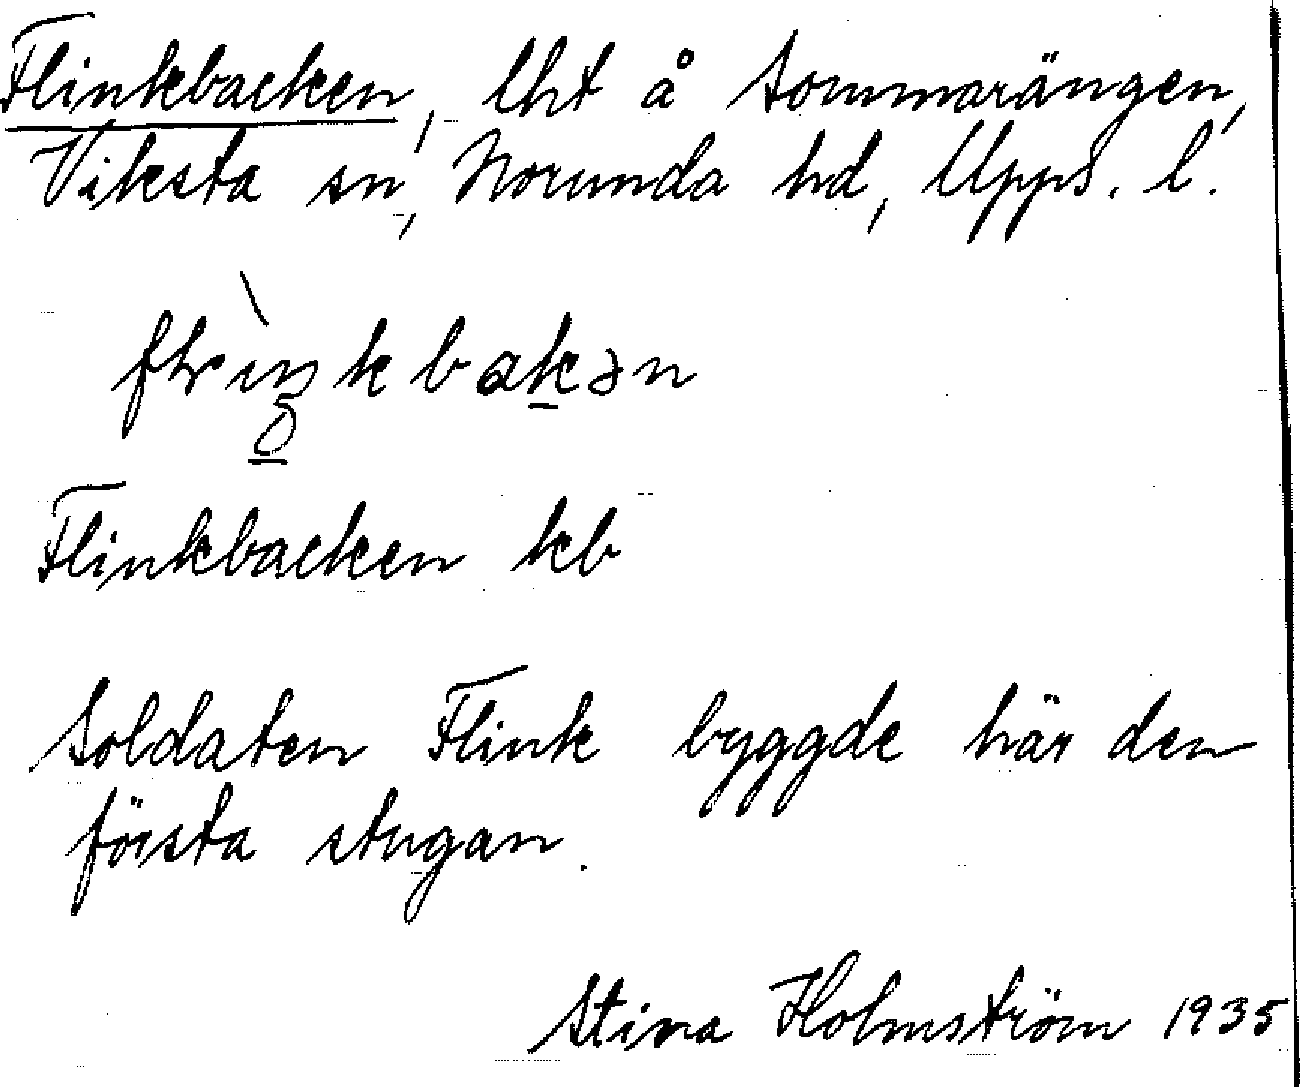 Flinkbacken, lht å Sommarängen,
Viksta sn, Norunda hd, Upps. l.
Flinkbacken kb
Soldaten Flink byggde här den
första stugan.
Stina Holmström 1935